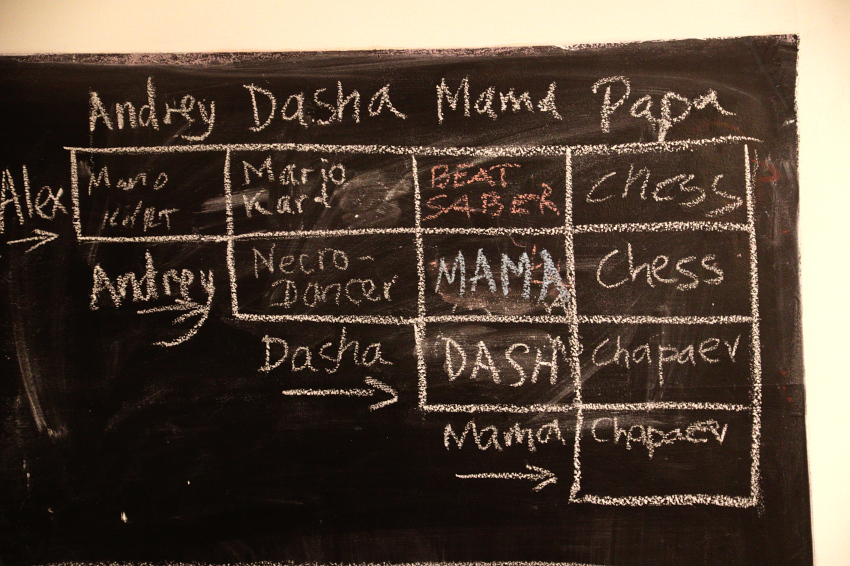 Andrey Dasha Mama Papa
Alex
Mario
Kart
Mario
Kart
BEAT
SABER
Chess
Andrey
Necro-
Dancer
MAMA
Chess
Dasha
DASHA
Chapaev
Mama
Chapaev